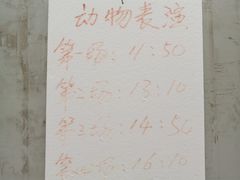 动物表演
第一场：11:50
第二场：13:10
第三场：14:50
第四场：16:10